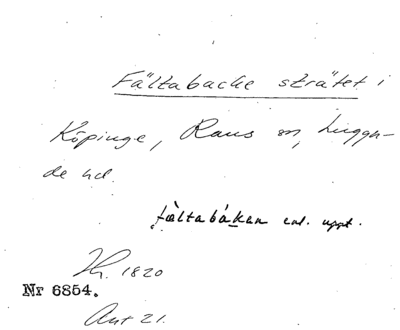 Fältabacke strätet i
Köpinge, Raus sn, Luggu-
de hd.
fæltabákan enl. uppt.
1820
Nr 6854.
Ant 21.